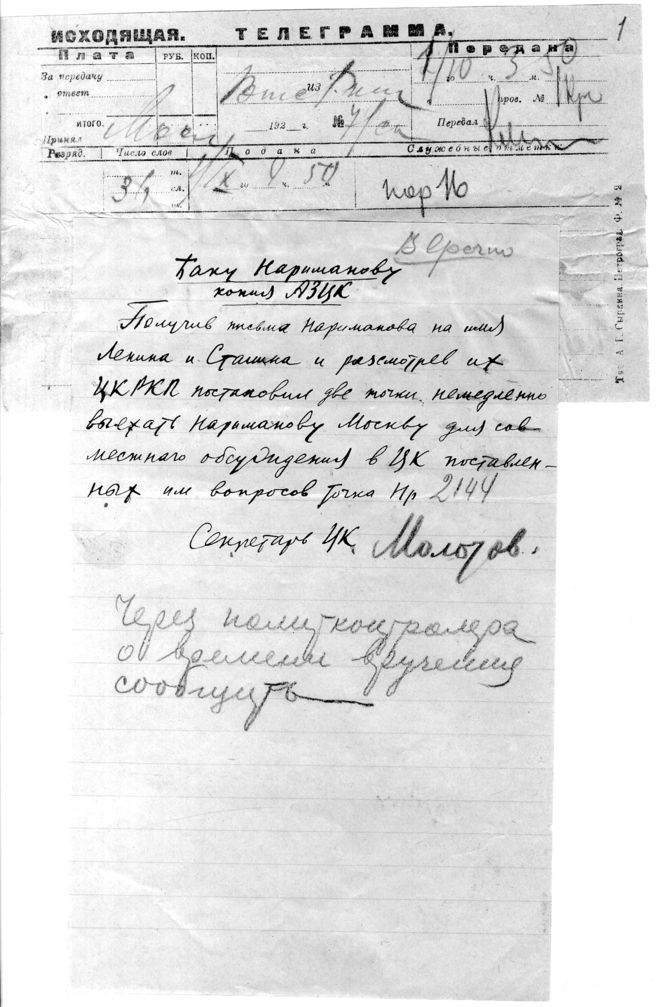 1
ИСХОДЯЩАЯ. ТЕЛЕГРАММА.
Плата РУБ. КОП. Передана
За передачу из 1/10 го ч. 5 м. 50
„ ответ пров. №
ИТОГО. 192 г. № Передал
Принял
Разряд. Число слов Подана Служебные отметки
т. 1/X го 9 ч. 50
сл.
Срочно
Баку Нариманову
копия АЗЦК
Получив письма Нариманова на имя
Ленина и Сталина и разсмотрев их
ЦКРКП постановил две точки немедленно
выехать Нариманову Москву для сов
местнаго обсуждения в ЦК поставлен-
ных им вопросов Точка Нр 2144
Секретарь ЦК Молотов.
Через политконтролера
о времени вручения
сообщить
Тип. А. Г. Сыркина, Петроград. Ф. № 2